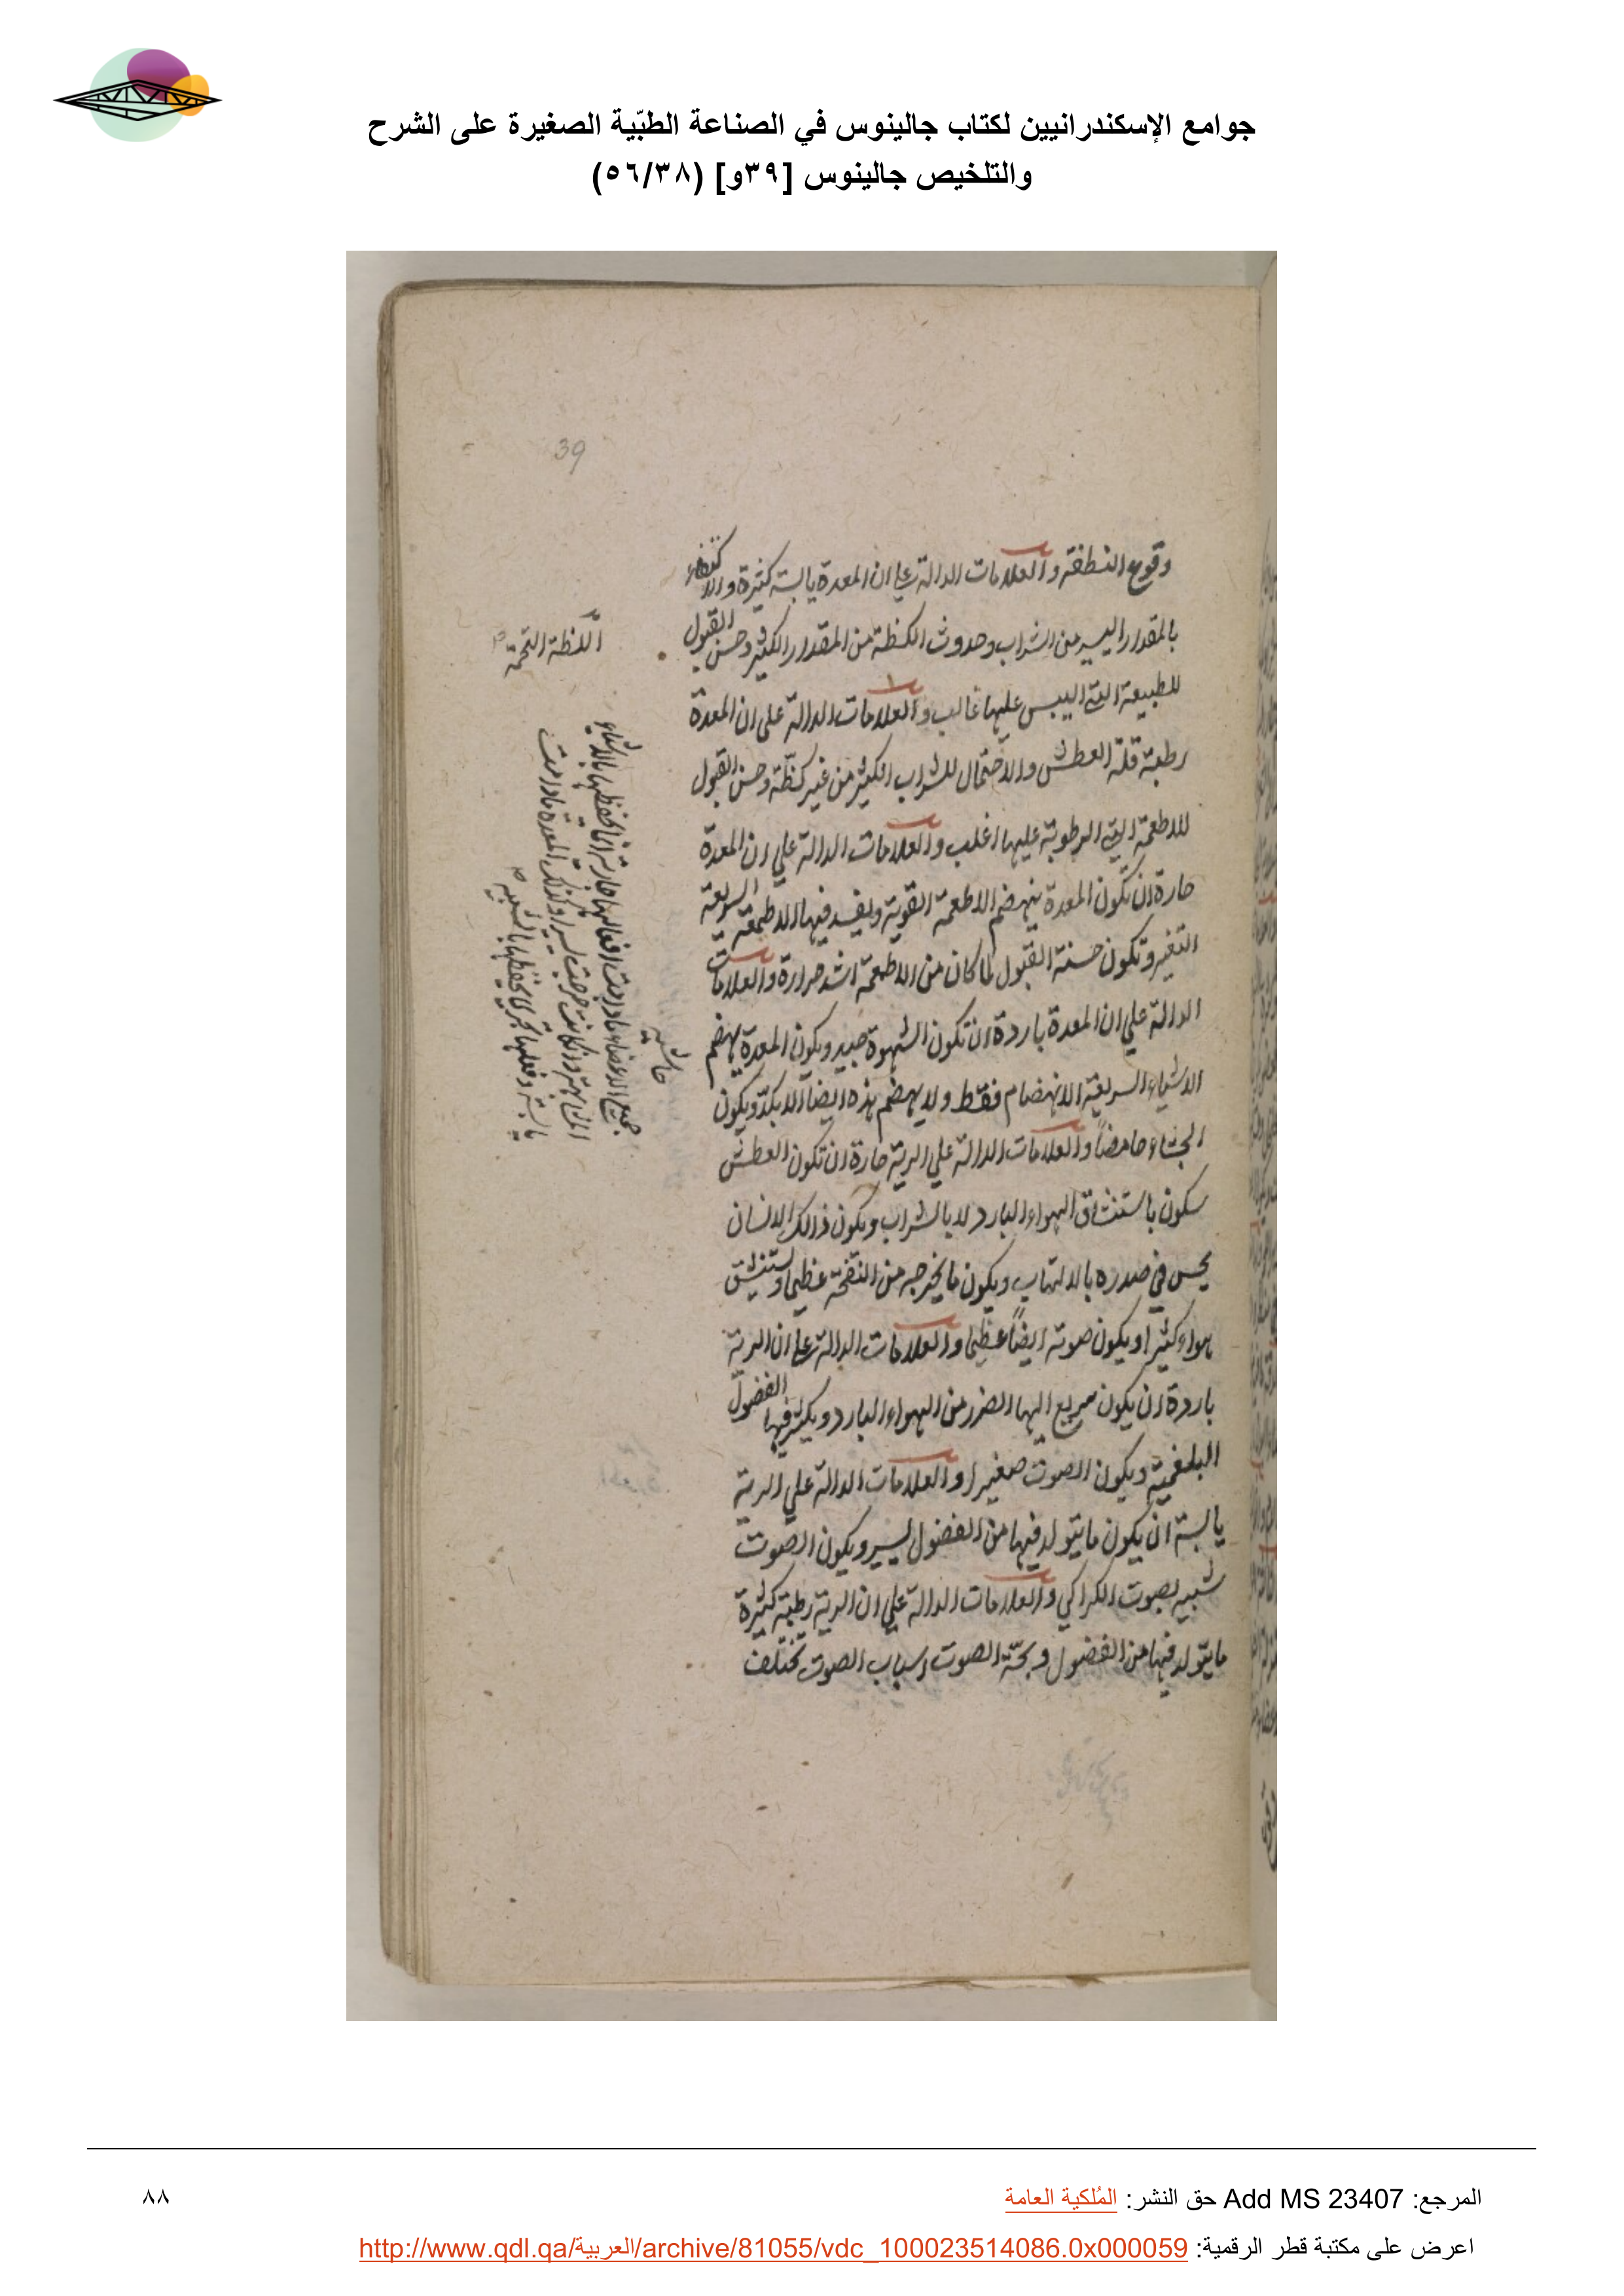 جوامع الإسكندرانيين لكتاب جالينوس في الصناعة الطبّية الصغيرة على الشرح
والتلخيص جالينوس [٣٩و] (٥٦/٣٨)
39
وقوع النطفة والعلامات الدالة على ان المعدة يابسة كثيرة والاكتفاء
بالمقدار اليسير من الشراب وحدوث الكظة من المقدار الكثير وحسن القبول
للطبيعة التي اليبس عليها غالب والعلامات الدالة على ان المعدة
رطبة قلة العطش والاحتمال للشراب الكثير من غير كظّة وحسن القبول
للاطعمة التي الرطوبة عليها اغلب والعلامات الدالة على ان المعدة
حارة ان تكون المعدة ينهضم الاطعمة القوية ويفسد فيها الاطعمة السريعة
التغير وتكون حسنة القبول لما كان من الاطعمة اشد حرارة والعلامات
الدالة على ان المعدة باردة ان تكون الشهوة جيد ويكون المعدة يهضم
الاشياء السريعة الانهضام فقط ولا يهضم هذه ايضاً الا بكدّ ويكون
الجشاء حامضاً والعلامات الدالة على الرية حارة ان تكون العطش
سكون باستنشاق الهواء البارد لا بالشراب ويكون ذالك الانسان
يحس في صدره بالالتهاب ويكون ما يخرجه من النفخة عظيما ويستنشق
هواء كثيرا ويكون صوته ايضاً عظيما والعلامات الدالة على ان الرية
باردة ان يكون سريع اليها الضرر من الهواء البارد ويكثر فيها الفضول
البلغمية ويكون الصوت صغيرا والعلامات الدالة على الرية
يابسة ان يكون ما يتولد فيها من الفضول يسير ويكون الصوت
شبيه بصوت الكراكي والعلامات الدالة على ان الرية رطبة كثيرة
ما يتولد فيها من الفضول وبحّة الصوت اسباب الصوت تختلف
الكظة التخمة
حاشية
جميع الاعضاء ما دامت افعالها جارية انما تحفظها بالاشياء
يابسة وفعلها تجري تحفظها بالشبيه
المرجع: Add MS 23407 حق النشر: المُلكية العامة
٨٨
اعرض على مكتبة قطر الرقمية: http://www.qdl.qa/العربية/archive/81055/vdc_100023514086.0x000059